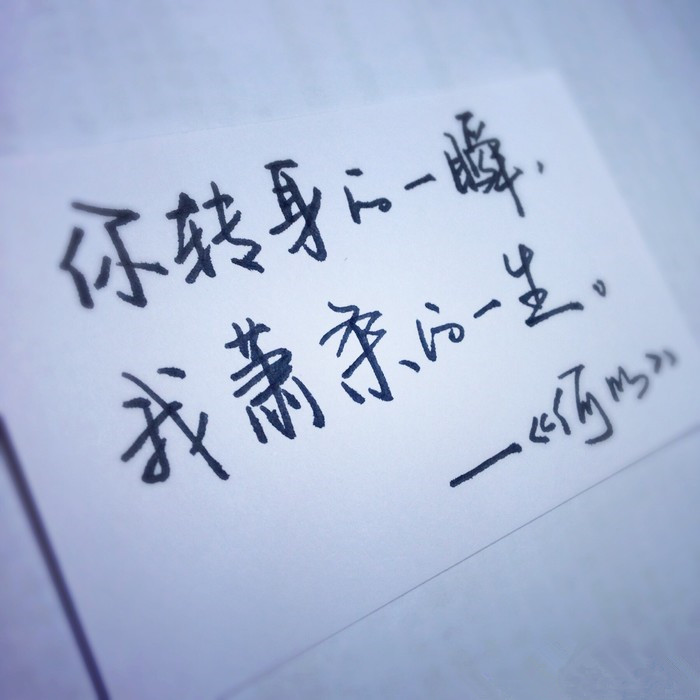 你转身的一瞬，
我萧条的一生。
——《何以》